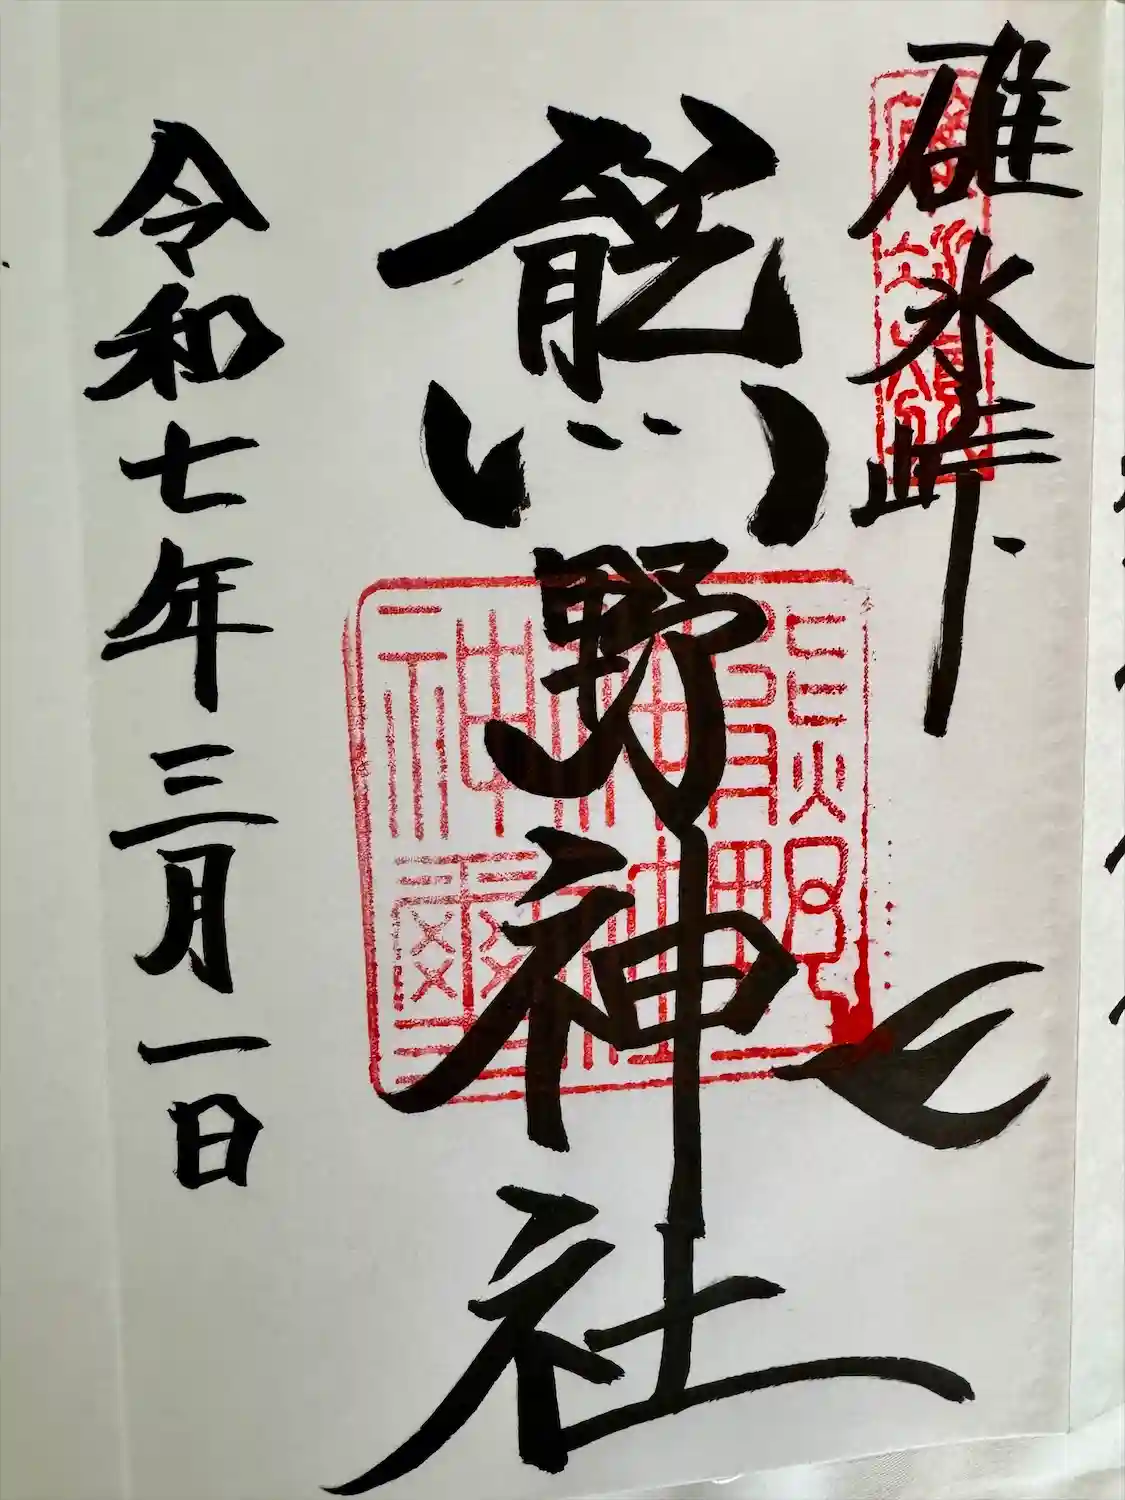 碓氷峠
熊野神社
熊野
神社
神璽
令和七年三月一日